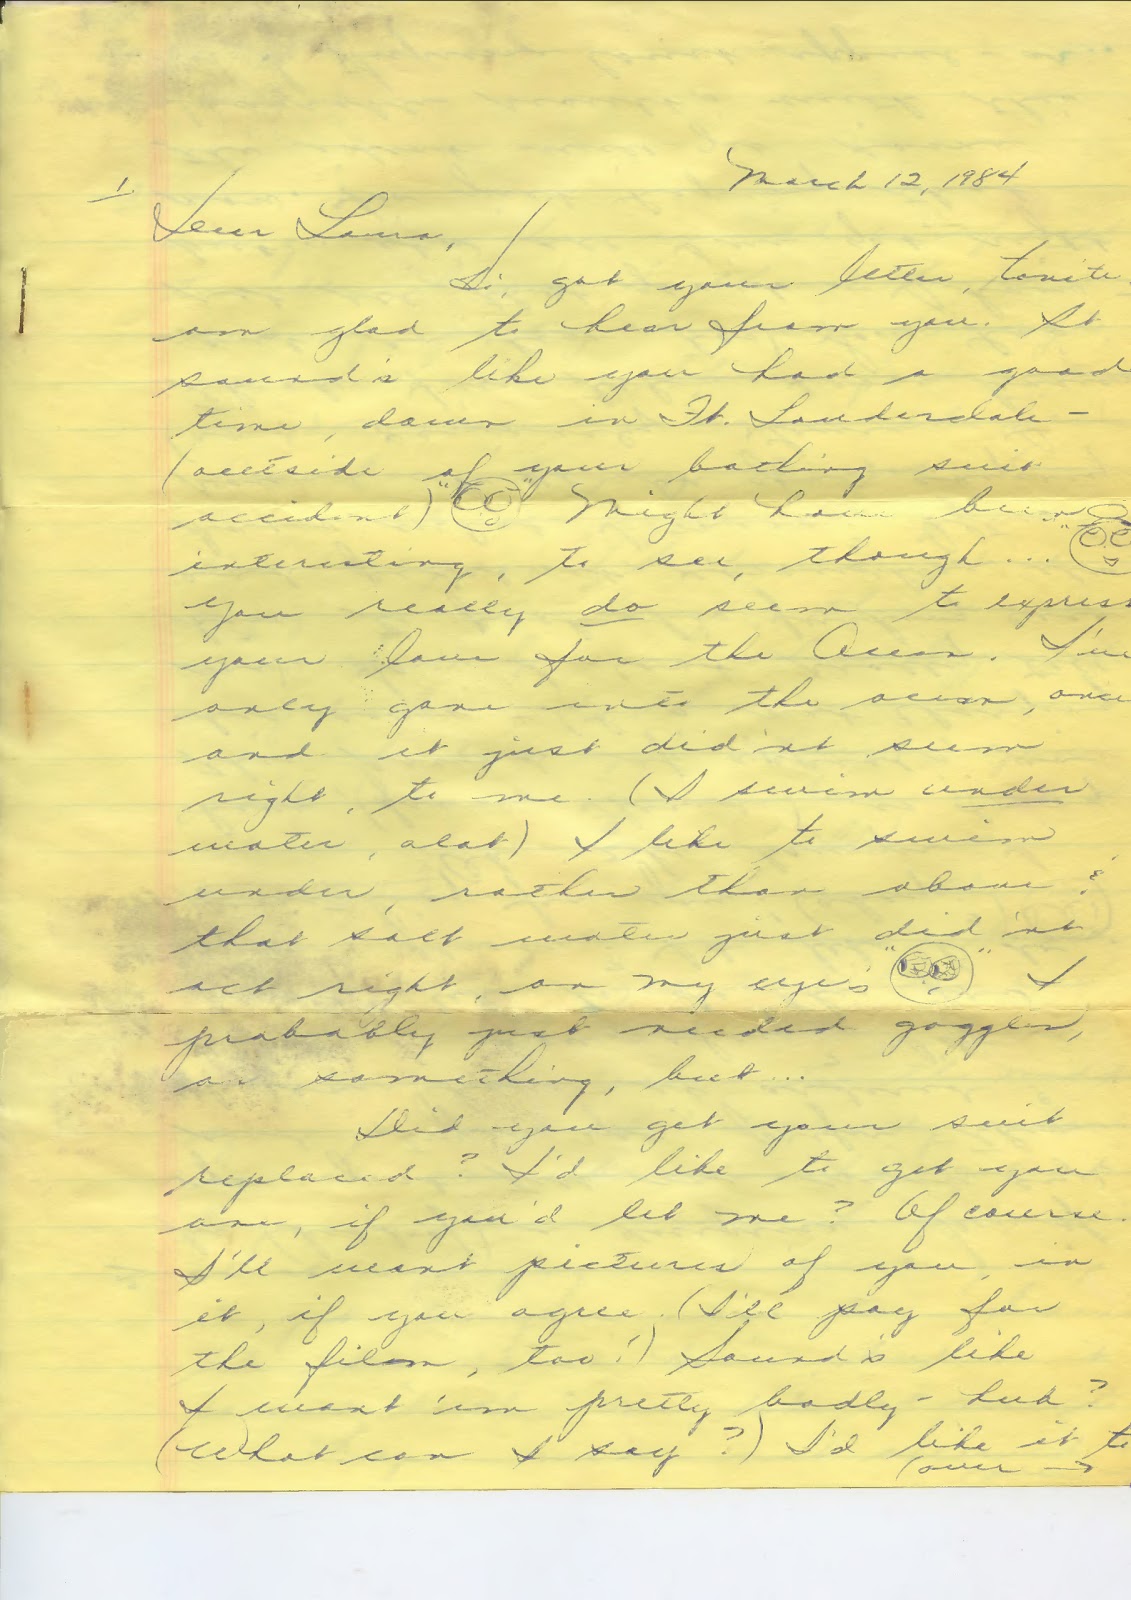 March 12, 1984
1.
Dear Laura,
Hi, got your letter, tonite,
am glad to hear from you. It
sound's like you had a good
time, down in Ft. Lauderdale -
(outside of your bathing suit
accident) Might have been
interesting, to see, though...
You really do seem to express
your love for the Ocean. I've
only gone into the ocean, once
and it just did'nt seem
right, to me. (I swim under
water, alot) I like to swim
under, rather than above &
that salt water just did'nt
act right, on my eye's I
probably just needed goggles,
or something, but...
Did you get your suit
replaced? I'd like to get you
one, if you'd let me? Of course.
I'll want pictures of you, in
it, if you agree. (I'll pay for
the film, too!) Sound's like
I want 'im pretty badly - huh?
(What can I say?) I'd like it to
(over →